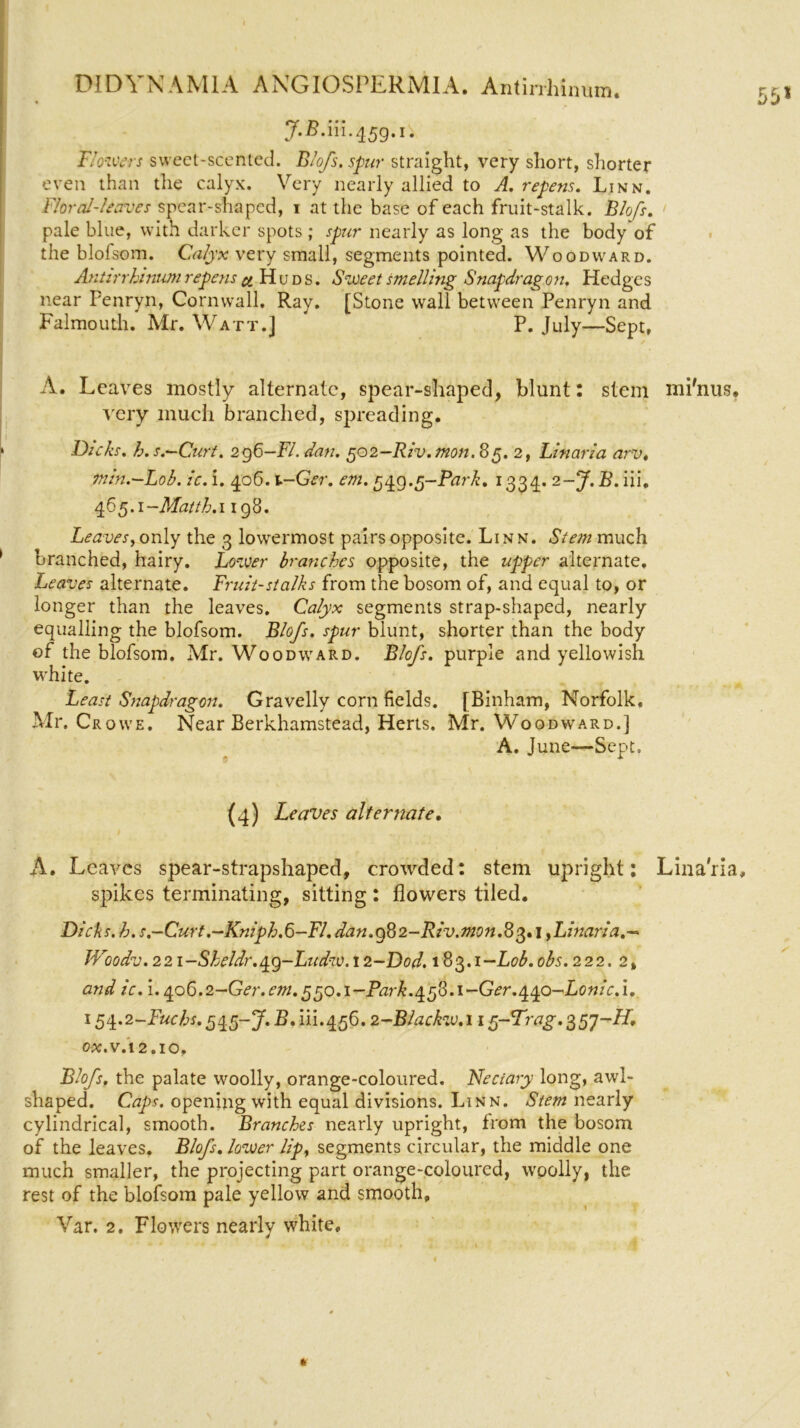 DIDYNAMIA ANGIOSPERMIA. Antirrhinum.
551
J.B.iii.459.1.
Flowers sweet-scented. Bloſs. spur straight, very short, shorter
even than the calyx. Very nearly allied to A. repens. Linn.
Floral-leaves spear-shaped, 1 at the base of each fruit-stalk. Bloſs.
pale blue, with darker spots; spur nearly as long as the body of
the bloſsom. Calyx very small, segments pointed. Woodward.
Antirrhinum repens α Huds. Sweet smelling Snapdragon. Hedges
near Penryn, Cornwall. Ray. [Stone wall between Penryn and
Falmouth. Mr. Watt.] P. July—Sept.
A. Leaves mostly alternate, spear-shaped, blunt: stem mi'nus.
very much branched, spreading.
Dicks. h. s.–Curt. 296–Fl. dan. 502–Riv. mon. 85. 2, Linaria arv.
min.–Lob. ic. i. 406. 1–Ger. em. 549.5–Park. 1334. 2–J. B. iii.
465.1–Matth. 1198.
Leaves, only the 3 lowermost pairs opposite. Linn. Stem much
branched, hairy. Lower branches opposite, the upper alternate.
Leaves alternate. Fruit-stalks from the bosom of, and equal to, or
longer than the leaves. Calyx segments strap-shaped, nearly
equalling the bloſsom. Bloſs. spur blunt, shorter than the body
of the bloſsom. Mr. Woodward. Bloſs. purple and yellowish
white.
Least Snapdragon. Gravelly corn fields. [Binham, Norfolk.
Mr. Crowe. Near Berkhamstead, Herts. Mr. Woodward.]
A. June—Sept.
(4) Leaves alternate.
A. Leaves spear-strapshaped, crowded: stem upright: Lina'ria.
spikes terminating, sitting: flowers tiled.
Dicks. h. s.–Curt.–Kniph.6–Fl. dan.982–Riv.mon.83.1, Linaria.–
Woodv. 221–Sheldr.49–Ludw.12–Dod. 183.1–Lob. obs. 222. 2,
and ic. i. 406.2–Ger. em. 550.1–Park.458.1–Ger.440–Lonic. i.
154.2–Fuchs. 545–J. B. iii.456. 2–Blackw.115–Trag.357–H.
ox.v.12.10.
Bloſs. the palate woolly, orange-coloured. Nectary long, awl-
shaped. Caps. opening with equal divisions. Linn. Stem nearly
cylindrical, smooth. Branches nearly upright, from the bosom
of the leaves. Bloſs. lower lip, segments circular, the middle one
much smaller, the projecting part orange-coloured, woolly, the
rest of the bloſsom pale yellow and smooth.
Var. 2. Flowers nearly white.